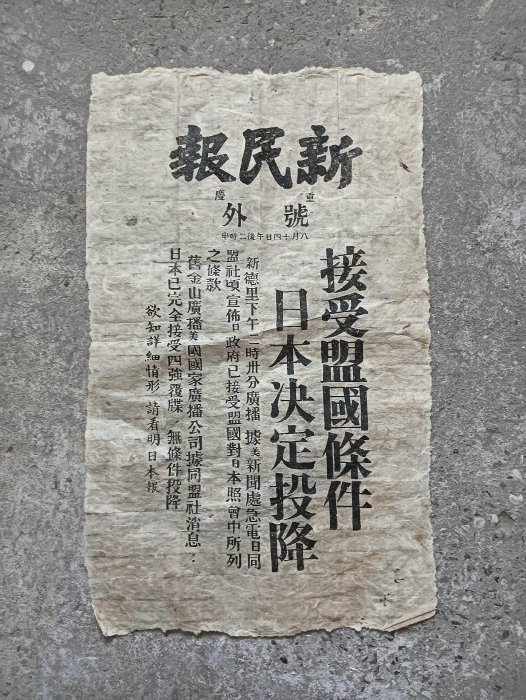 新民報
重慶
號外
八月十四日午後二時半
接受盟國條件
日本決定投降
新德里下午二時卅分廣播 據美新聞處急電日同
盟社頃宣佈日政府已接受盟國對日本照會中所列
之條款
舊金山廣播美國國家廣播公司據同盟社消息.
日本已完全接受四強覆牒,無條件投降
欲知詳細情形 請看明日本報